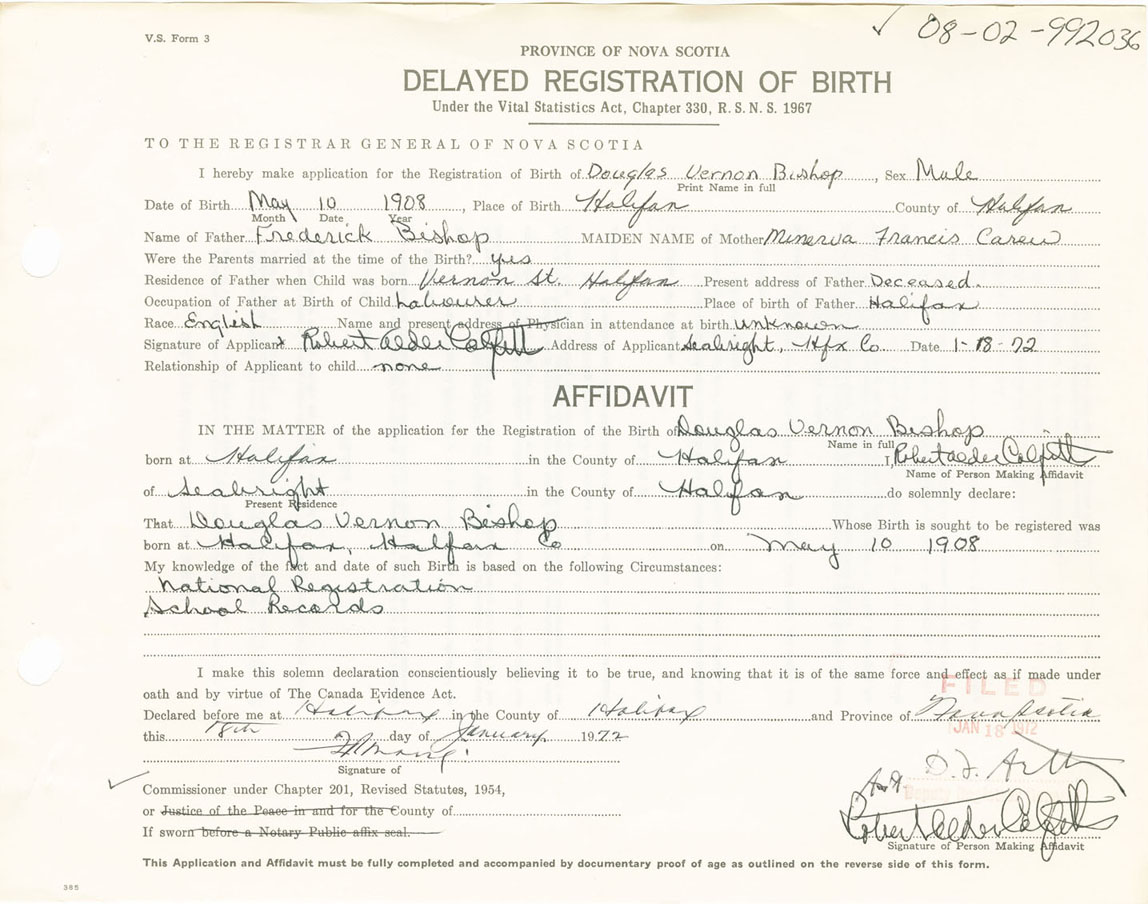 V.S. Form 3
✓ 08-02-992036
PROVINCE OF NOVA SCOTIA
DELAYED REGISTRATION OF BIRTH
Under the Vital Statistics Act, Chapter 330, R. S. N. S. 1967
TO THE REGISTRAR GENERAL OF NOVA SCOTIA
I hereby make application for the Registration of Birth of Douglas Vernon Bishop, Sex Male
Print Name in full
Date of Birth May 10 1908, Place of Birth Halifax County of Halifax
Month Date Year
Name of Father Frederick Bishop MAIDEN NAME of Mother Minerva Francis Carew
Were the Parents married at the time of the Birth? yes
Residence of Father when Child was born Vernon St. Halifax Present address of Father Deceased.
Occupation of Father at Birth of Child Labourer Place of birth of Father Halifax
Race English Name and present address of Physician in attendance at birth unknown
Signature of Applicant Robert Alder Colpitt Address of Applicant Seabright, Hfx Co Date 1-18-72
Relationship of Applicant to child none
AFFIDAVIT
IN THE MATTER of the application for the Registration of the Birth of Douglas Vernon Bishop
Name in full
born at Halifax in the County of Halifax I, Robert Alder Colpitt
Name of Person Making Affidavit
of Seabright in the County of Halifax do solemnly declare:
Present Residence
That Douglas Vernon Bishop Whose Birth is sought to be registered was
born at Halifax, Halifax Co on May 10 1908
My knowledge of the fact and date of such Birth is based on the following Circumstances:
National Registration
School Records
I make this solemn declaration conscientiously believing it to be true, and knowing that it is of the same force and effect as if made under
oath and by virtue of The Canada Evidence Act.
FILED
Declared before me at Halifax in the County of Halifax and Province of Nova Scotia
this 18th day of January 1972
JAN 18 1972
Signature of
Commissioner under Chapter 201, Revised Statutes, 1954,
or Justice of the Peace in and for the County of
If sworn before a Notary Public affix seal.
Robert Alder Colpitt
Signature of Person Making Affidavit
This Application and Affidavit must be fully completed and accompanied by documentary proof of age as outlined on the reverse side of this form.
385